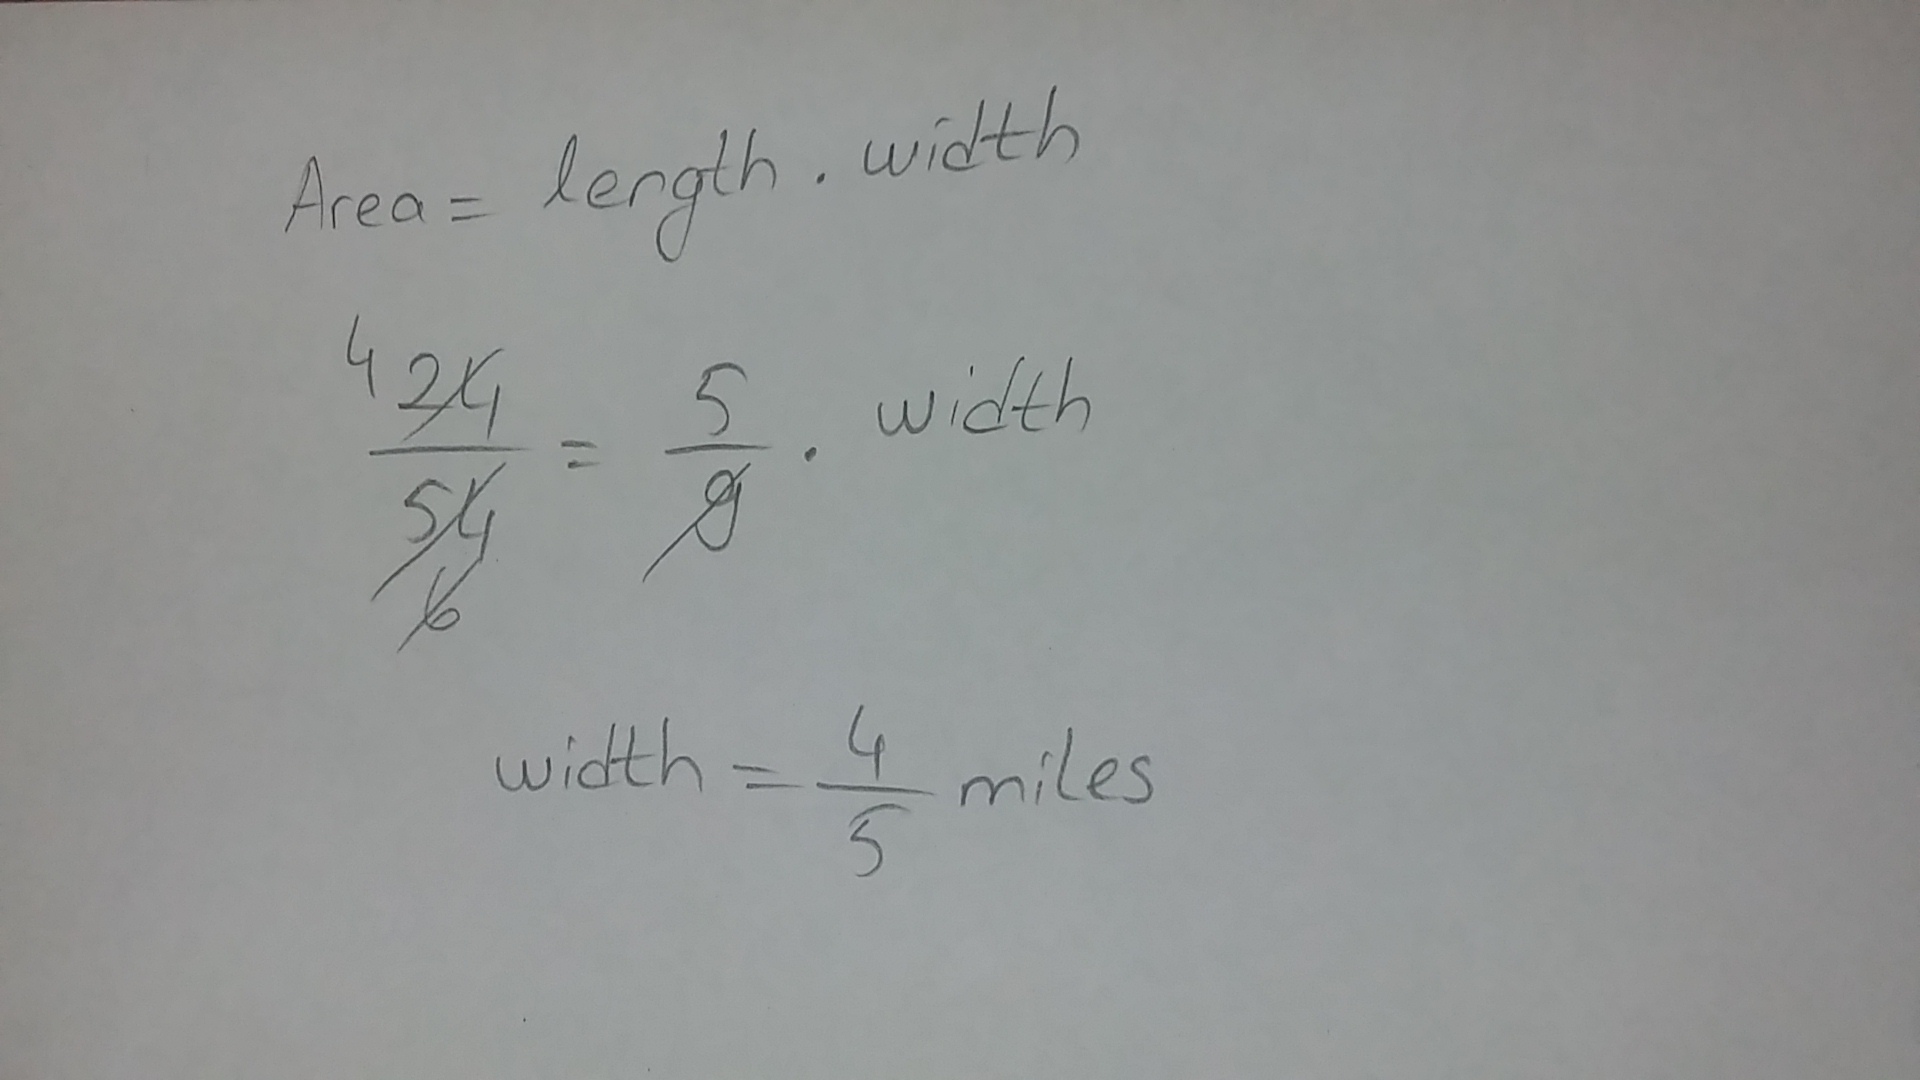 Area = length . width
4 24/54 6 = 5/9 . width
width = 4/5 miles